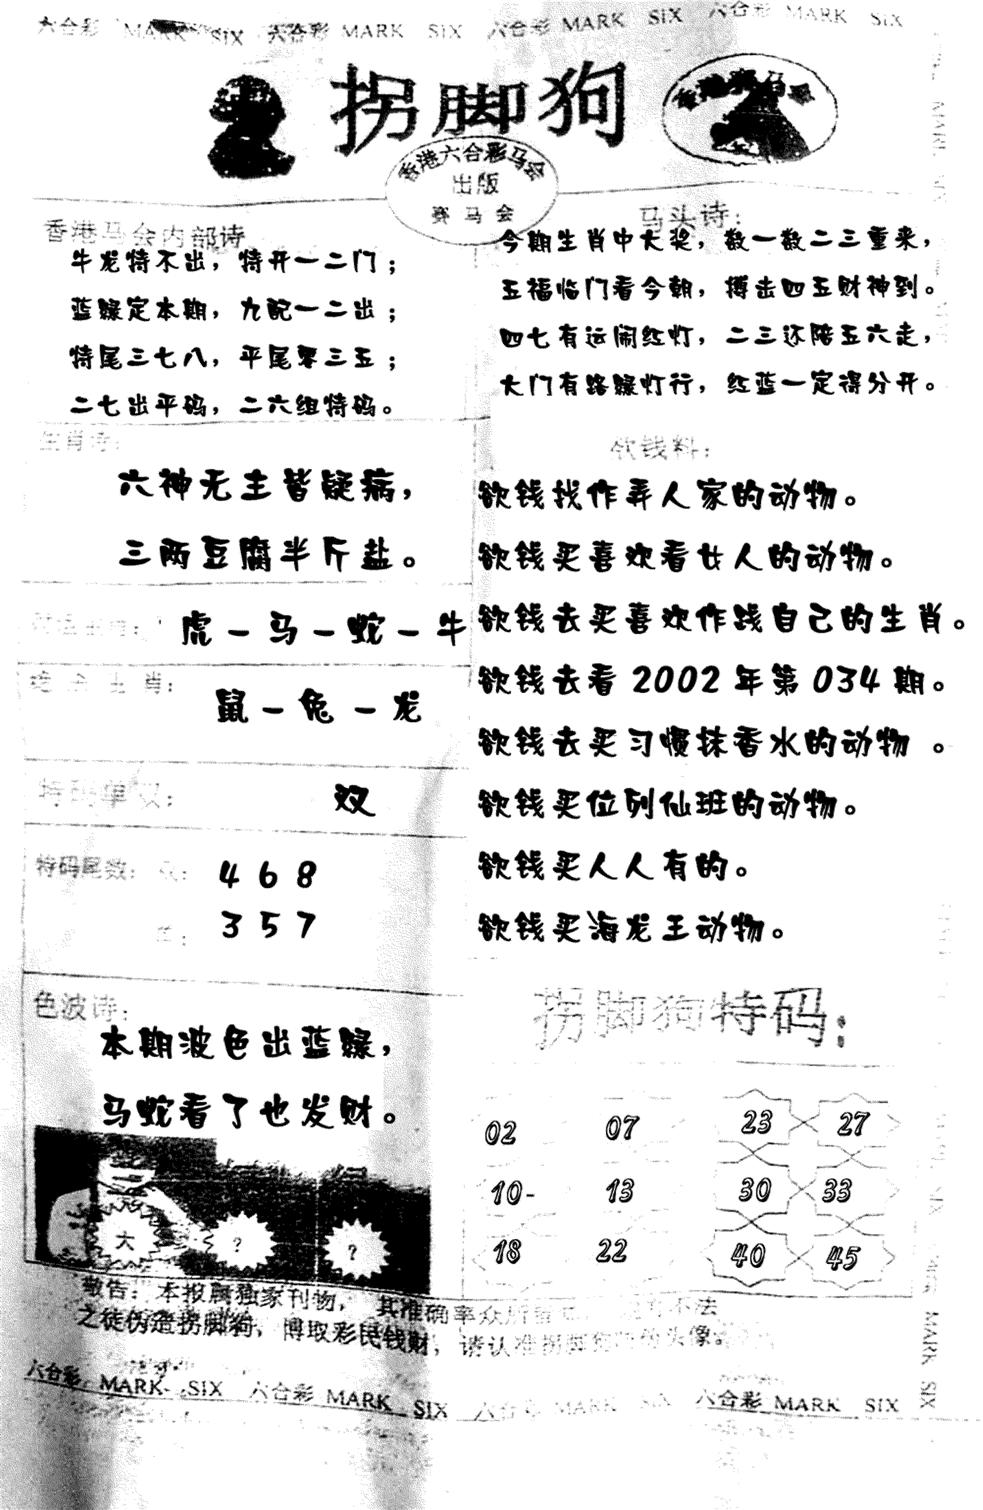 六合彩 MARK SIX 六合彩 MARK SIX 六合彩 MARK SIX 六合彩 MARK SIX
拐脚狗
香港赛马会
香港六合彩马会
出版
赛马会
香港马会内部诗
牛龙特不出，特开一二门；
蓝绿定本期，九配一二出；
特尾三七八，平尾零三五；
二七出平码，二六组特码。
马头诗：
今期生肖中大奖，数一数二三重来，
五福临门看今朝，搏击四五财神到。
四七有运闹红灯，二三还陪五六走，
大门有路绿灯行，红蓝一定得分开。
生肖诗：
六神无主皆疑病，
三两豆腐半斤盐。
虎－马－蛇－牛
生肖：
鼠－兔－龙
特码单双：
双
特码尾数：双：468
单：357
色波诗：
本期波色出蓝绿，
马蛇看了也发财。
大 ? ?
欲钱料：
欲钱找作弄人家的动物。
欲钱买喜欢看女人的动物。
欲钱去买喜欢作践自己的生肖。
欲钱去看2002年第034期。
欲钱去买习惯抹香水的动物。
欲钱买位列仙班的动物。
欲钱买人人有的。
欲钱买海龙王动物。
拐脚狗特码：
02 07 23 27
10- 13 30 33
18 22 40 45
敬告：本报属独家刊物，其准确率众所 不法
之徒伪造拐脚狗，博取彩民钱财，请认准拐脚狗 头像。
六合彩 MARK SIX 六合彩 MARK SIX 六合彩 MARK SIX 六合彩 MARK SIX
MARK SIX